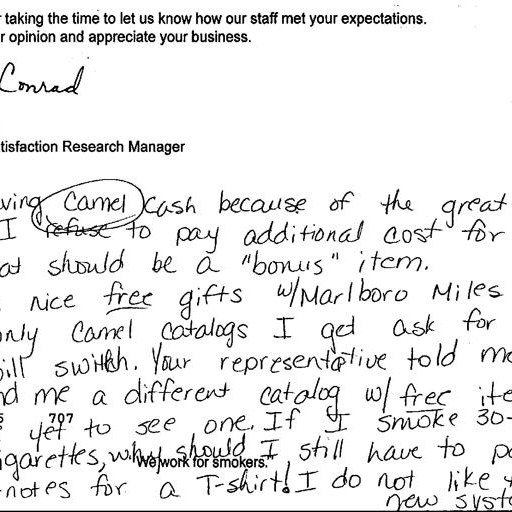 taking the time to let us know how our staff met your expectations.
r opinion and appreciate your business.
Conrad
tisfaction Research Manager
ving Camel Cash because of the great
I refuse to pay additional cost for
at should be a "bonus" item.
nice free gifts w/Marlboro Miles
only Camel catalogs I get ask for
ill switch. Your representative told me
nd me a different catalog w/ free ite
707
yet to see one. If I smoke 30-
igarettes, why should I still have to pa
We work for smokers.
-notes for a T-shirt! I do not like
new syst